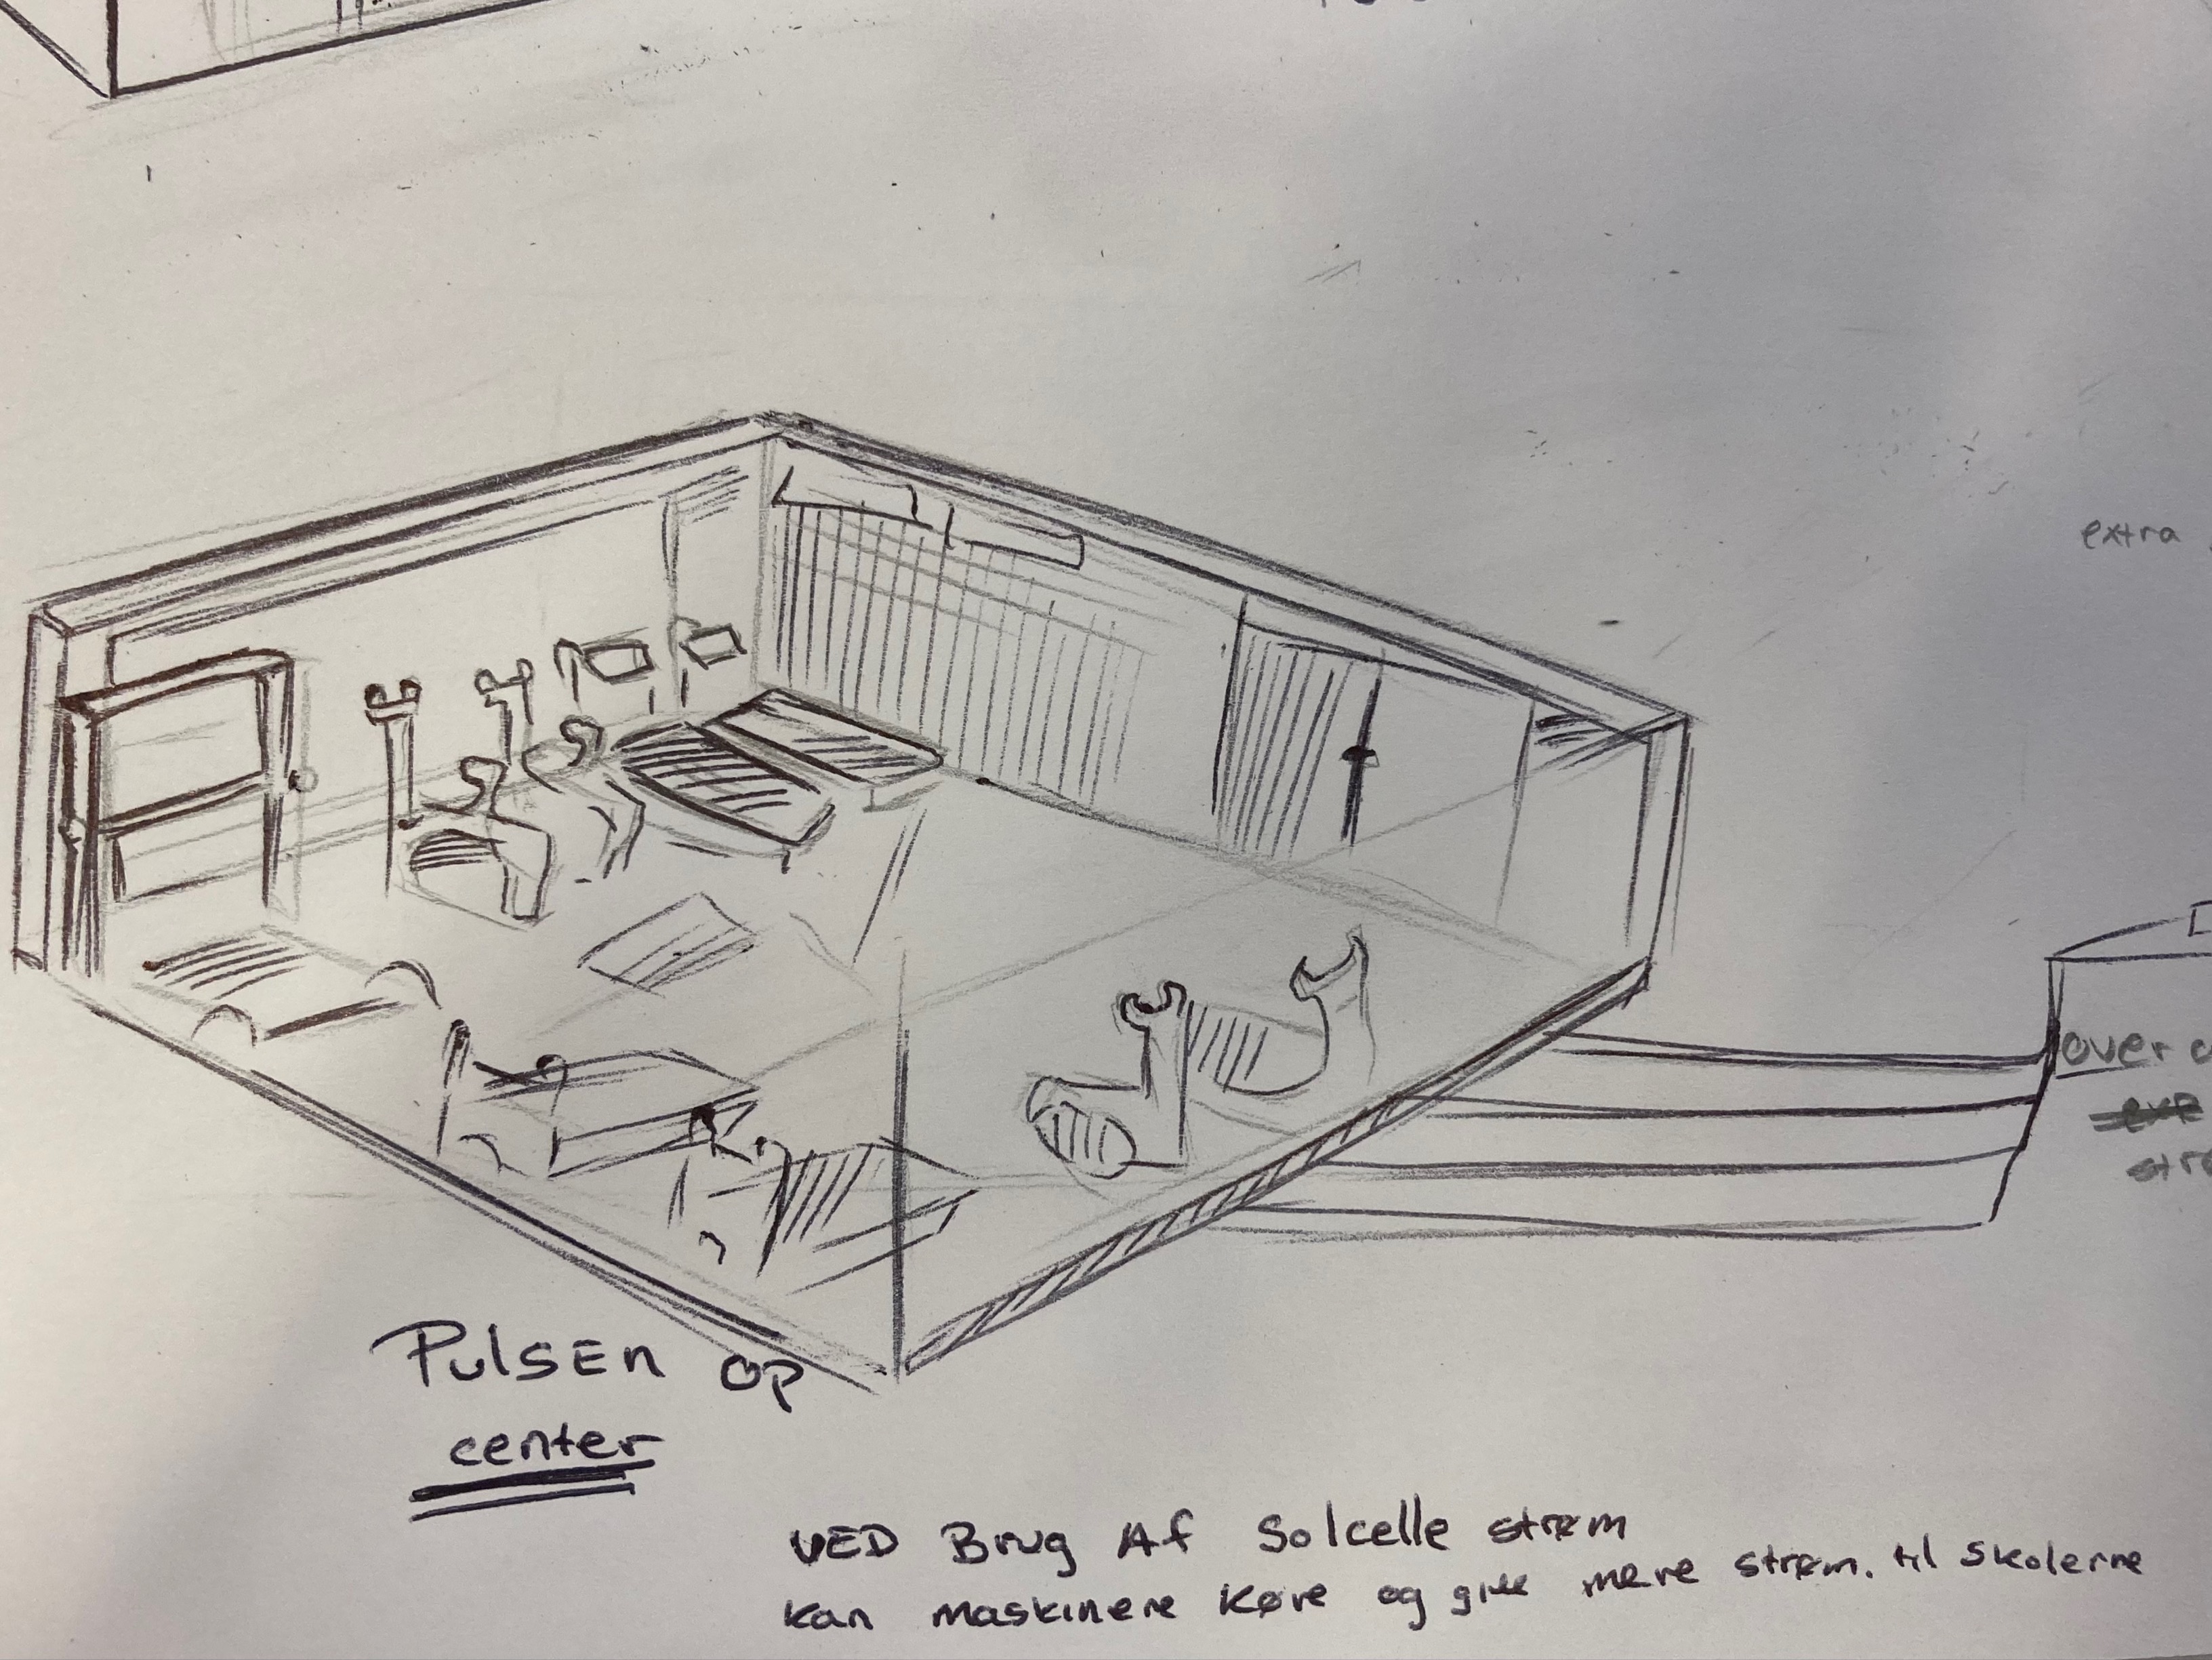 extra
over
Pulsen op
center
VED Brug Af Solcelle strøm
kan maskinere køre og give mere strøm. til skolerne